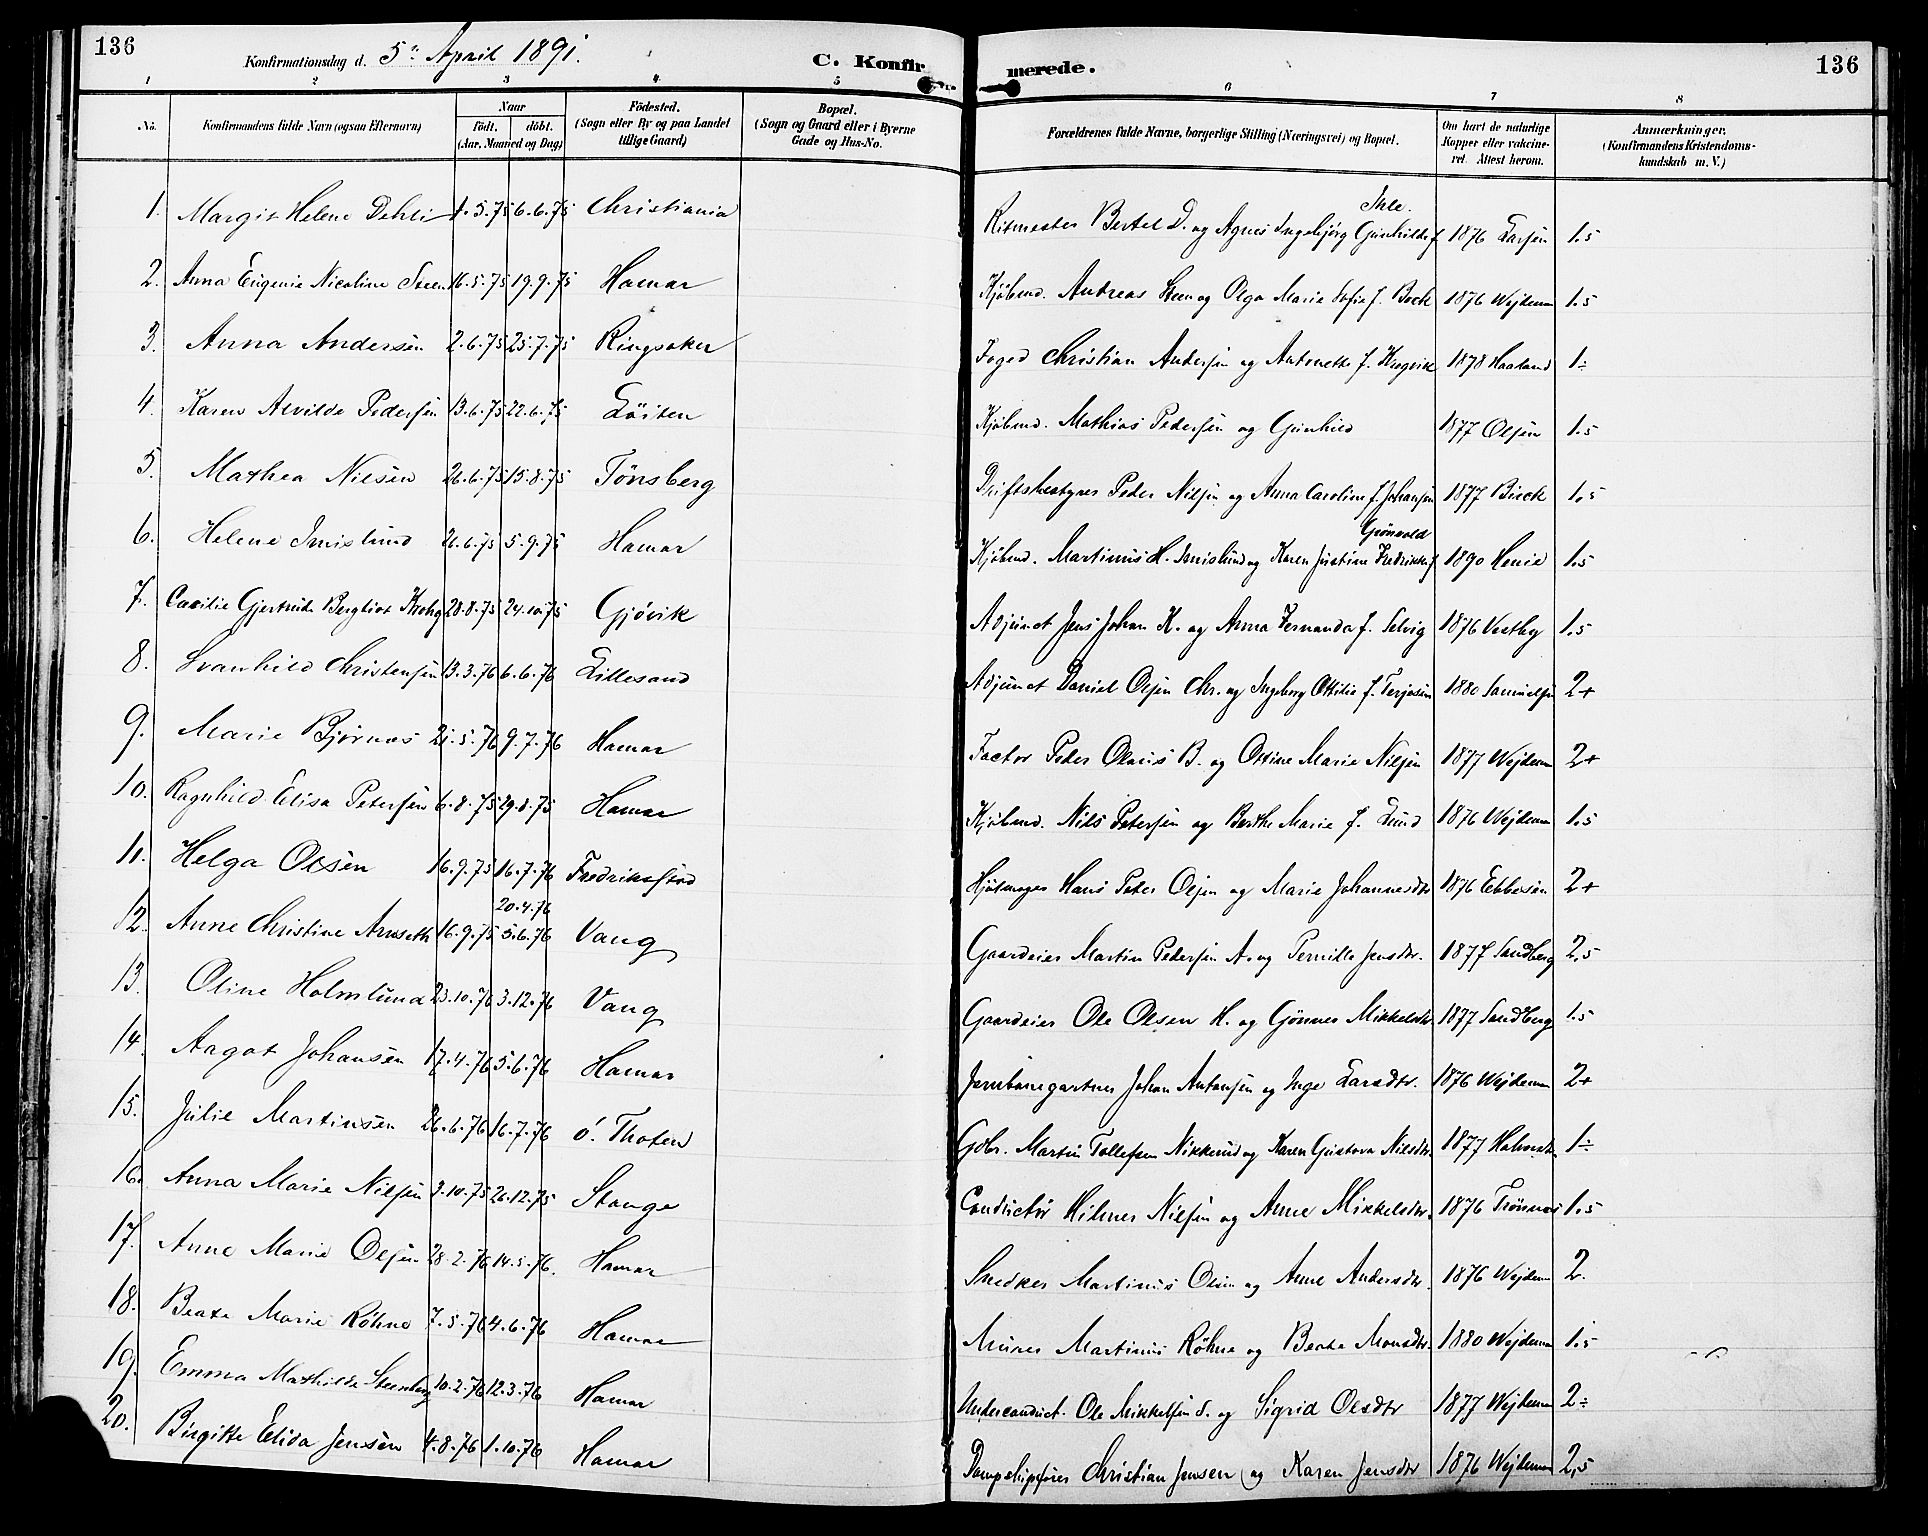 136
Konfirmationsdag d. 5te April 1891.
C. Konfirmerede.
136
1 2 3 4 5 6 7 8
No.
Konfirmandens fulde Navn (ogsaa Efternavn)
Naar
födt. döbt.
(Aar, Maaned og Dag)
Födested.
(Sogn eller By og paa Landet tillige Gaard)
Bopæl.
(Sogn og Gaard eller i Byerne Gade og Hus-No.
Forældrenes fulde Navne, borgerlige Stilling (Næringsvei) og Bopæl.
Om havt de naturlige Kopper eller vakcineret. Attest herom.
Anmærkninger.
(Konfirmandens Kristendomskundskab m. V.)
1. Margit Helene Dehli 1.5.75 6.6.75 Christiania Ritmester Bertel D. og Agnes Ingebjörg Gunhilde f. Ihle. 1876 Larsen 1.5
2. Anna Eugenie Nicoline Steen 16.5.75 19.9.75 Hamar Kjöbmd. Andreas Steen og Olga Marie Sofie f. Beck 1876 Wejdeman 1.5
3. Anna Andersen 2.6.75 25.7.75 Ringsaker Foged Christian Andersen og Antonette f. 1878 Haaland 1÷
4. Karen Alvilde Pedersen 13.6.75 22.6.75 Löiten Kjöbmd. Mathias Pedersen og Gunhild 1877 Olsen 1.5
5. Mathea Nilsen 26.6.75 15.8.75 Tönsberg Driftsbestyrer Peder Nilsen og Anna Caroline f. Johansen 1877 Bieck 1.5
6. Helene Imislund 26.6.75 5.9.75 Hamar Kjöbmd. Martinius H. Imislund og Karen Justine Fredrikke f. Grönvold 1890 Henie 1.5
7. Cæcilie Gjertrude Bergliot Krohg 28.8.75 24.10.75 Gjövik Adjunct Jens Johan K. og Anna Fernanda f. Selvig 1876 Vestby 1.5
8. Svanhild Christensen 13.3.76 6.6.76 Lillesand Adjunct Daniel Olsen Chr. og Ingeborg Ottilie f. Terjesen 1880 Samuelsen 2+
9. Marie Bjørnaas 21.5.76 9.7.76 Hamar Factor Peder Olaus B. og Ottine Marie Nilsen 1877 Wejdeman 2+
10. Ragnhild Elisa Petersen 6.8.75 29.8.75 Hamar Kjöbmd. Nils Petersen og Berthe Marie f. Lund 1876 Wejdeman 1.5
11. Helga Olsen 16.9.75 16.7.76 Fredriksstad Hjulmager Hans Peter Olsen og Marie Johannesdtr 1876 Ebbesen 2+
12. Anne Christine Arnseth 16.9.75 20.4.76 5.6.76 Vang Gaardeier Martin Pedersen A. og Pernille Jensdtr. 1877 Sandberg 2,5
13. Oline Holmlund 23.10.76 3.12.76 Vang Gaardeier Ole Olsen H. og Gönner Mikkelsdtr 1877 Sandberg 1.5
14. Aagot Johansen 17.4.76 5.6.76 Hamar Jernbanegartner Johan Antonsen og Inge Larsdtr. 1876 Wejdeman 2+
15. Julie Martinsen 26.6.76 16.7.76 Ö. Thoten Gbr. Martin Tollefsen Nikkerud og Karen Gustava Nilsdtr. 1877 1÷
16. Anna Marie Nilsen 9.10.75 26.12.75 Stange Conductör Hilmer Nilsen og Anne Mikkelsdtr. 1876 Trönnæs 1.5
17. Anne Marie Olsen 28.2.76 14.5.76. Hamar Snedker Martinus Olsen og Anne Andersdtr. 1876 Wejdem 2.
18. Beate Marie Röhne 7.5.76 4.6.76 Hamar Murer Martinus Röhne og Beate Monsdtr. 1880 Wejdeman 1.5
19. Emma Mathilde Steenberg 10.2.76 12.3.76 Hamar Underconduct. Ole Mikkelsen S. og Sigrid Olsdtr 1877 Wejdeman 2÷
20. Birgitte Elida Jensen 4.8.76 1.10.76 Hamar Dampskipsförer Christian Jensen og Karen Jensdtr 1876 Wejdeman 2,5